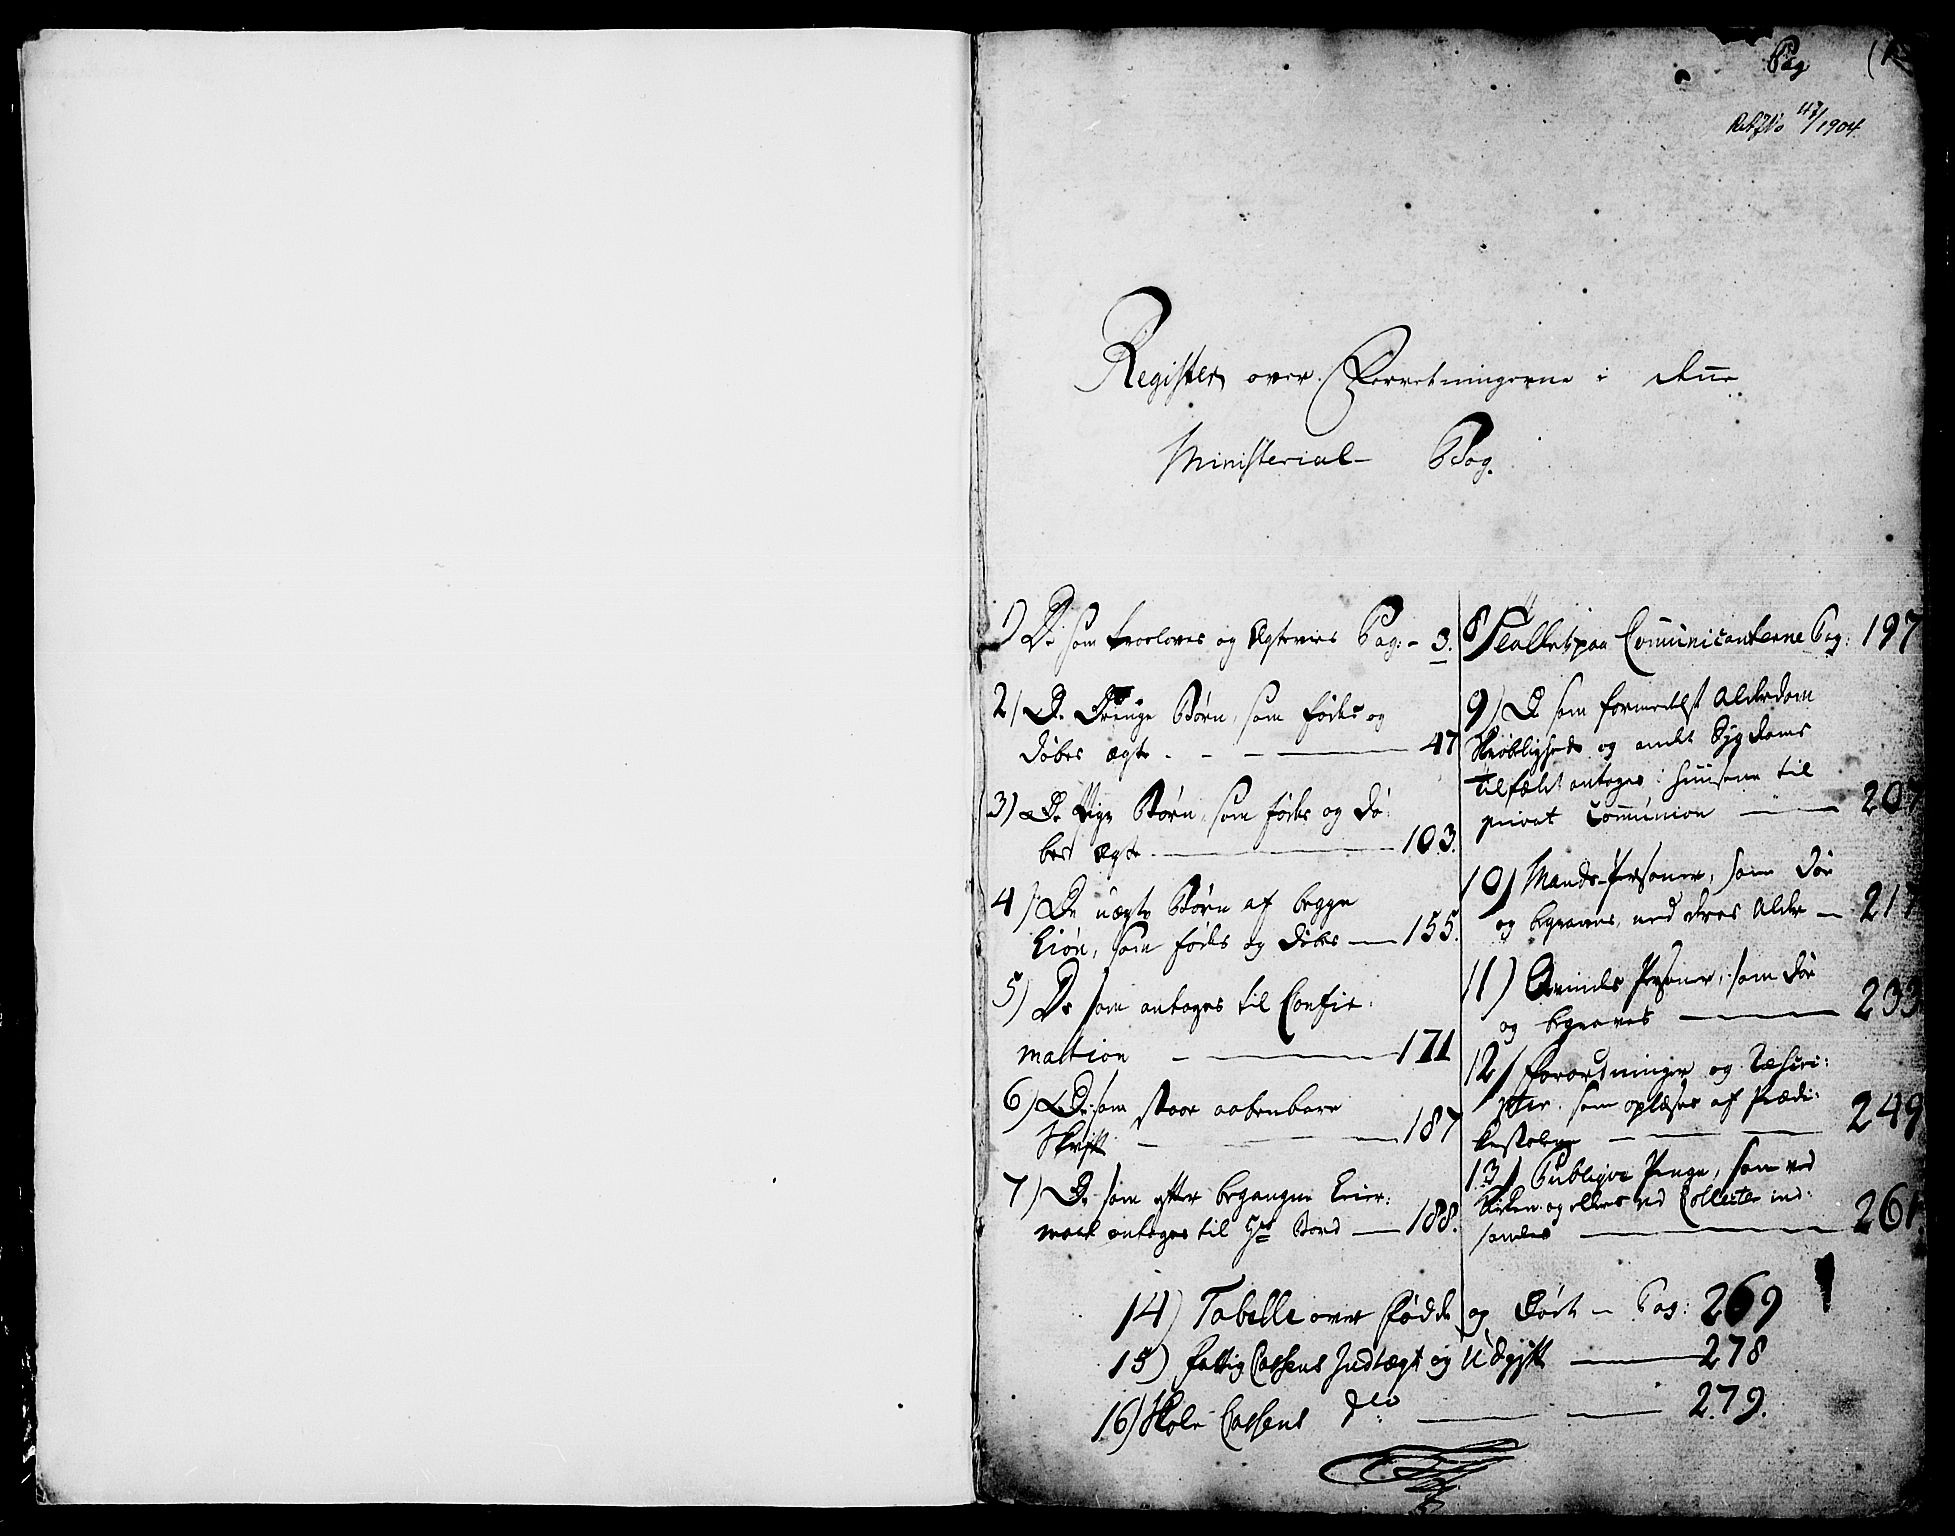 Pag (1
47/1904
Register over Forretningerne i denne
Ministerial- Bog.
1) De som trooloves og Ægtevies Pag: - 3.
2) De Drenge Børn, som fødes og
døbes ægte - - - 47
3) De Pige Børn, som fødes og dø:
bes ægte - 103.
4) De uægte Børn af begge
Kiøn, som fødes og døbes - 155.
5) De som antages til Confir:
mation - 171
6) De som staae aabenbare
Skrift - 187
7) De som efter begangne Leier:
maal antages til Hs Bord - 188.
8) Tallet paa Communicanterne Pag: 197
9) De som formedelst Alderdom
Skrøbelighed og andet Sygdoms
tilfælde antages i Huusene til
privat Communion - 207
10) Mands-Personer, som døe
og begraves, med deres Alder - 217
11) Qvinde Personer, som døe
og begraves - 233
12) Forordninger og Rescri:
pter, som oplæses af Prædi:
kestolen - 249
13) Publique Penge, som ved
Kirken og ellers ved Collecter ind:
samles - 261.
14) Tabelle over Fødde og Døde - Pag: 269
15) Fattig Cassens Indtægt og Udgift - 278
16) Skole Cassens dto - 279.